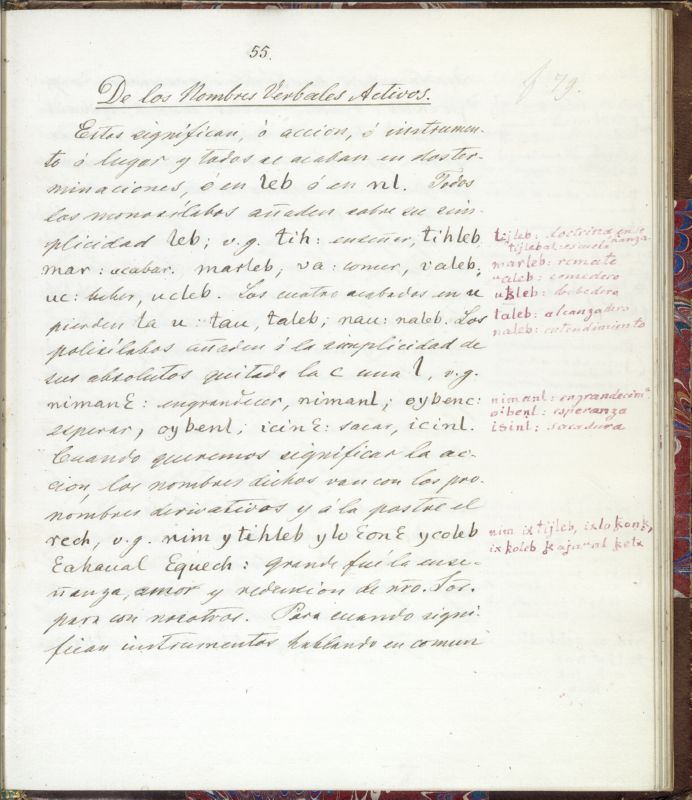 55.
f 79.
De los Nombres Verbales Activos.
Estos significan, ó accion, ó instrumen-
to ó lugar y todos se acaban en dos ter-
minaciones, ó en leb ó en nl. Todos
los monosílabos añaden sobre su sim-
plicidad leb; v.g. tih: enseñer, tihleb
mar: acabar. marleb, va: comer, valeb,
uc: beber, ucleb. Los cuatro acabados en u
pierden la u: tau, taleb; nau: naleb. Los
polisílabos añaden á la simplicidad de
sus absolutos quitada la c una l, v.g.
nimanε: engrandecer, nimanl; oybenc:
esperar, oybenl; icinε: sacar, icinl.
Cuando queremos significar la ac-
cion, los nombres dichos van con los pro-
nombres derivativos y á la postre el
rech, v.g. nim y tihleb y lo εonε ycoleb
εahaual εquech: grande fué la ense-
ñanza, amor y redencion de nro. Sor.
para con nosotros. Para cuando signi-
fican instrumentos hablando en comun
tijleb: doctrina, ense
tijlebal: escuela ñanza
marleb: remate
valeb: comedero
ukleb: bebedero
taleb: alcanzadero
naleb: entendimiento
nimanl: engrandecim°.
oibenl: esperanza
isinl: sacadura
nim ix tijleb, ixlokonk,
ix koleb kajaual ketx